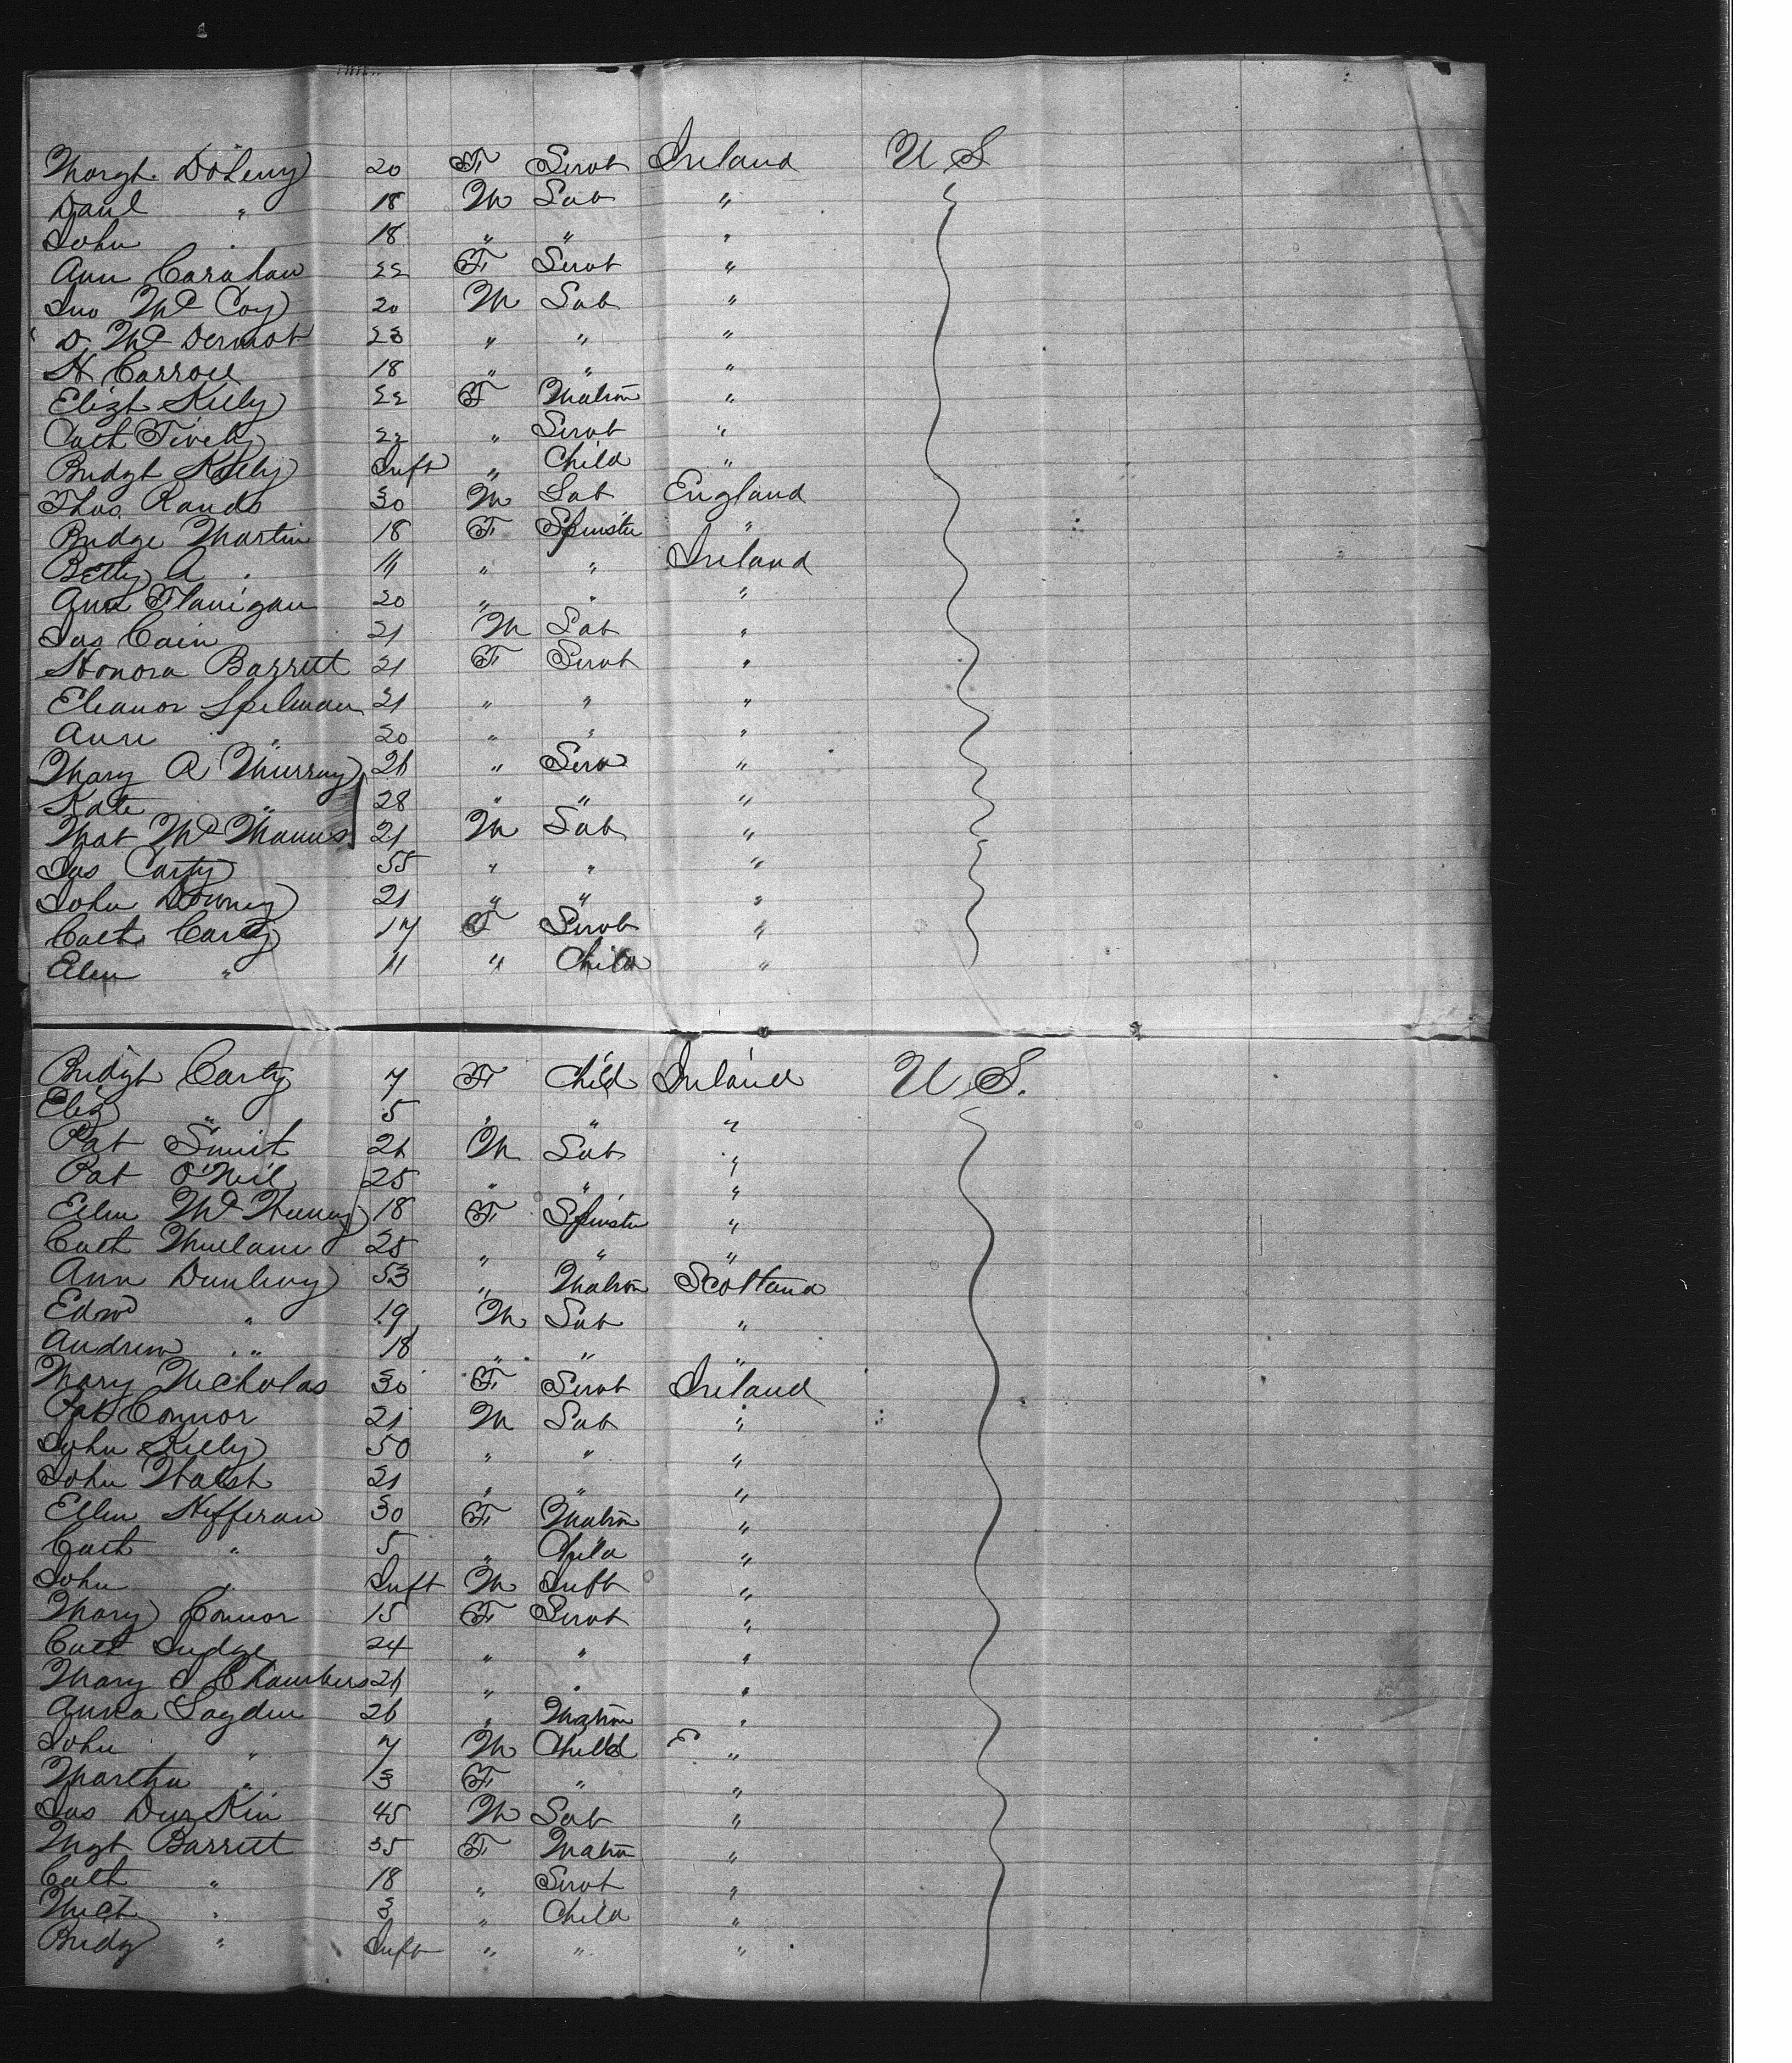 Margt. Doheny 20 F Servt Ireland U S
Danl " 18 M Lab "
John " 18 " " "
Ann Carahan 22 F Servt "
Jno McCoy 20 M Lab "
D. McDermot 23 " " "
H Carroll 18 " " "
Elizt Kelly 22 F Matron "
Cath 22 " Servt "
Bridgt Kelly Inft " Child "
Thos Rands 30 M Lab England
Bridge Martin 18 F Spinster "
Betty A " 11 " " Ireland
Ann Flanigan 20 " " "
Jas Cain 21 M Lab "
Honora Barrett 21 F Servt "
Eleanor Spelman 21 " " "
Ann " 20 " " "
Mary A Murray 26 " Serv "
Kate " 28 " " "
Mat McManus 21 M Lab "
Jas Carty 55 " " "
John Downey 21 " " "
Cath Carty 17 F Servt "
Ellen " 11 " Child "
Bridgt Carty 7 F Child Ireland U.S.
Eliz " 5 " " "
Pat Smit 26 M Lab "
Pat O'Neil 25 " " "
Ellen 18 F Spinster "
Cath Mullani 25 " " "
Ann Dunlevy 53 " Matron Scotland
Edwd " 19 M Lab "
Andrew " 18 " " "
Mary Nicholas 30 F Servt Ireland
Pat Connor 21 M Lab "
John Kelly 50 " " "
John Walsh 21 " " "
Ellen Hefferan 30 F Matron "
Cath " 5 " Child "
John " Inft M Inft "
Mary Connor 15 F Servt "
Cath Judge 24 " " "
Mary J Chambers 26 " " "
Anna Logden 26 " Matron "
John " 7 M Child E "
Martha " 3 F " "
Jas Durkin 45 M Lab "
Mgt Barrett 35 F Matn "
Cath " 18 " Servt "
Mich " 3 " Child "
Bridg " Inft " " "